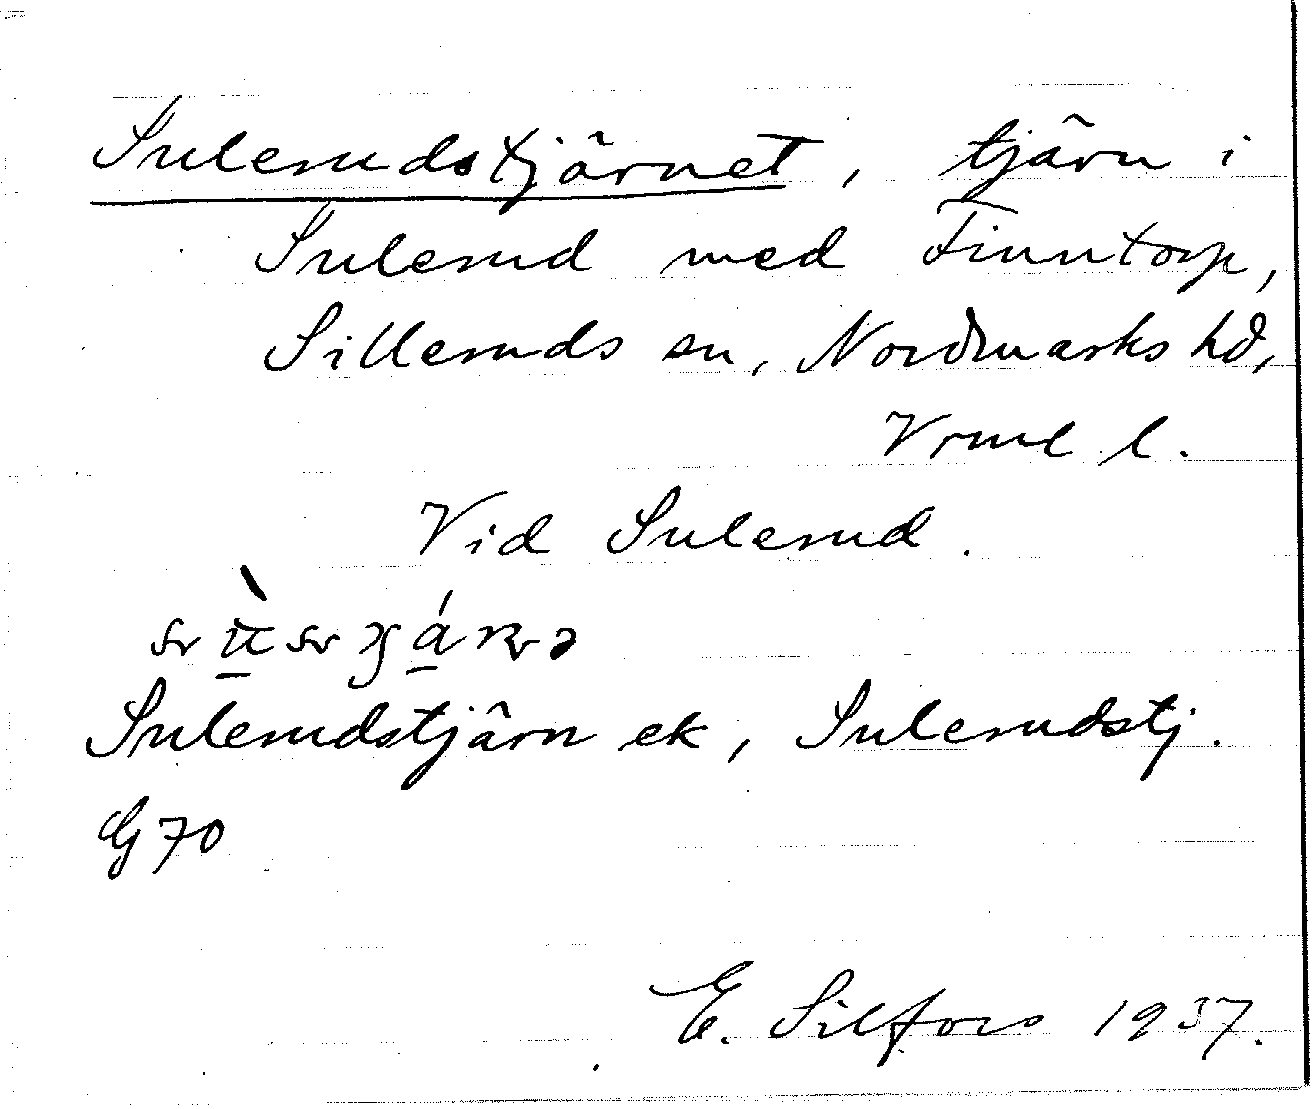 Sulerudstjärnet, tjärn i
Sulerud med Finntorp,
Silleruds sn, Nordmarks hd,
Vrml l.
Vid Sulerud.
Sulerudstjärn ek, Sulerudstj.
G 70
E. Silfors 1937.